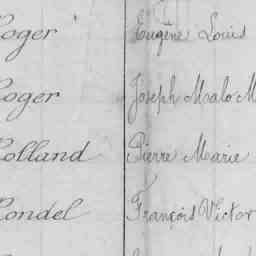 Roger Eugène Louis
Roger Joseph Malo M
Rolland Pierre Marie
Rondel François Victor